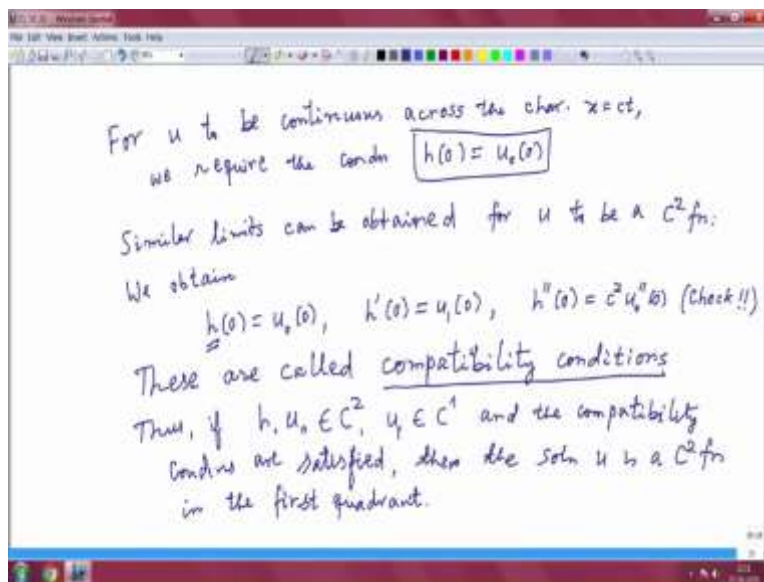 For u to be continuous across the char. x=ct,
we require the condn h(0) = u₀(0)
Similar limits can be obtained for u to be a C² fn.
We obtain
h(0) = u₀(0), h'(0) = u₁(0), h''(0) = c² u₀''(0) (Check !!)
These are called compatibility conditions
Thus, if h, u₀ ∈ C², u₁ ∈ C¹ and the compatibility
condns are satisfied, then the soln u is a C² fn
in the first quadrant.